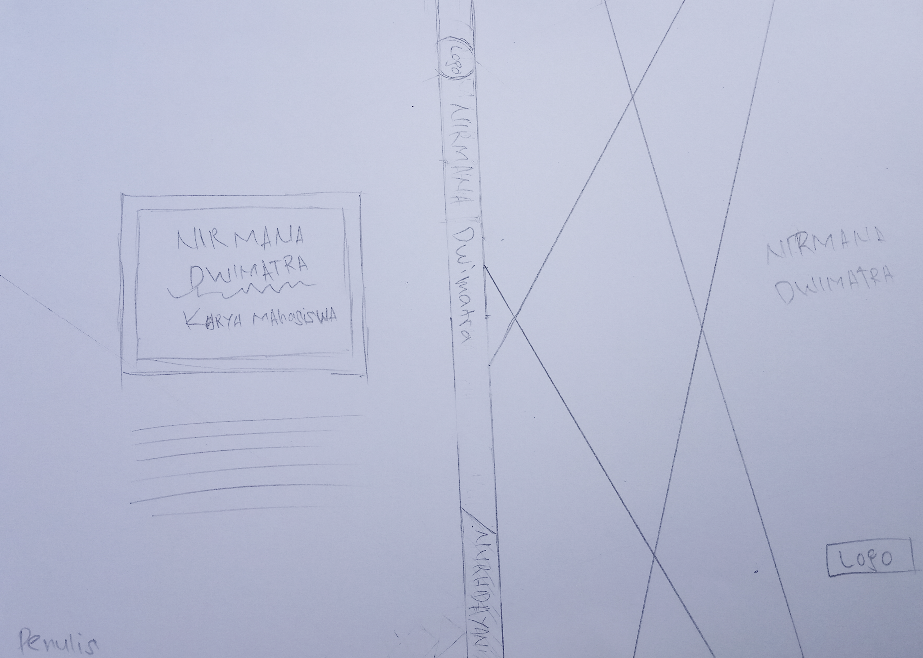 NIRMANA
DWIMATRA
KARYA MAHasiswA
Penulis
Logo
NIRMANA Dwimatra
NIRMANA
DWIMATRA
Logo